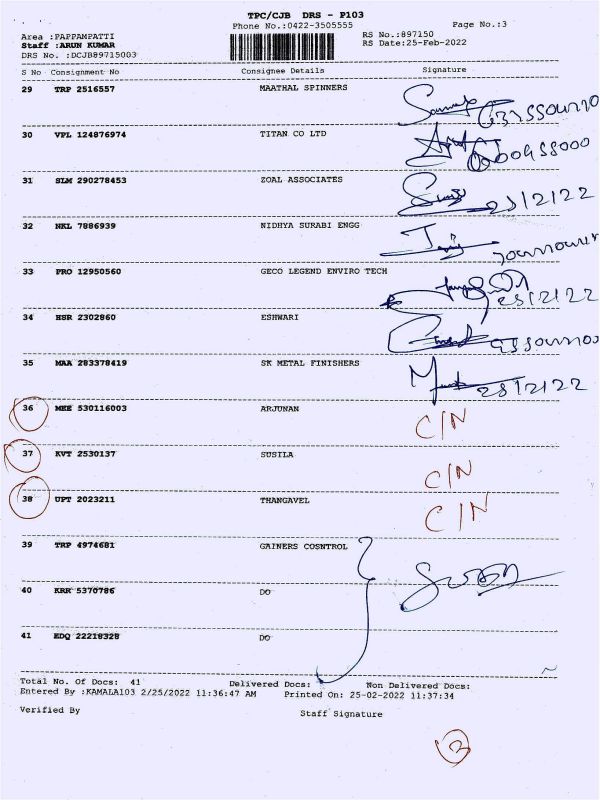 TPC/CJB DRS - P103
Phone No.:0422-3505555 Page No.:3
Area :PAPPAMPATTI RS No.:897150
Staff :ARUN KUMAR RS Date:25-Feb-2022
DRS No. :DCJB89715003
S No Consignment No Consignee Details Signature
29 TRP 2516557 MAATHAL SPINNERS
30 VPL 124876974 TITAN CO LTD
31 SLM 290278453 ZOAL ASSOCIATES
32 NKL 7886939 NIDHYA SURABI ENGG
33 PRO 12950560 GECO LEGEND ENVIRO TECH
34 HSR 2302860 ESHWARI
35 MAA 283378419 SK METAL FINISHERS
36 MEE 530116003 ARJUNAN C/N
37 KVT 2530137 SUSILA C/N
38 UPT 2023211 THANGAVEL C/N
39 TRP 4974681 GAINERS COSNTROL
40 KRR 5370786 DO
41 EDQ 22218328 DO
Total No. Of Docs: 41 Delivered Docs: Non Delivered Docs:
Entered By :KAMALA103 2/25/2022 11:36:47 AM Printed On: 25-02-2022 11:37:34
Verified By Staff Signature